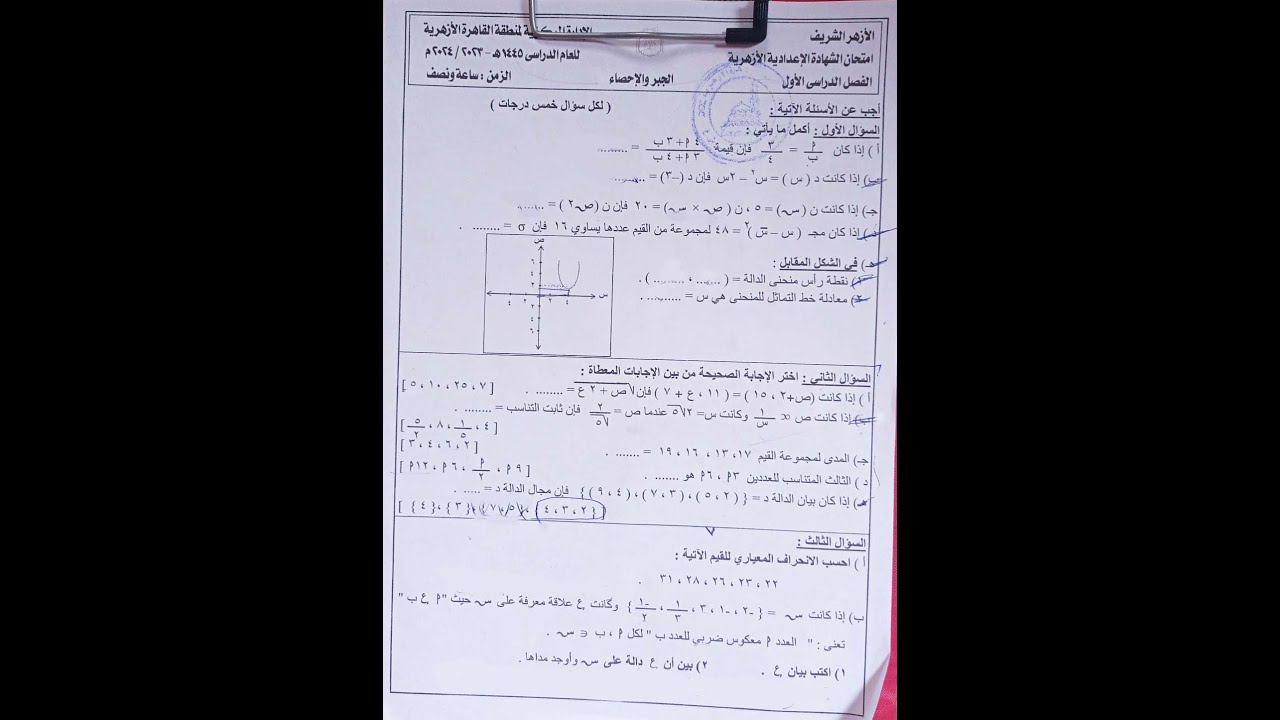 الأزهر الشريف
امتحان الشهادة الإعدادية الأزهرية
الفصل الدراسى الأول
الجبر والإحصاء
لمنطقة القاهرة الأزهرية
للعام الدراسى ١٤٤٥هـ - ٢٠٢٣ / ٢٠٢٤ م
الزمن : ساعة ونصف
أجب عن الأسئلة الآتية : ( لكل سؤال خمس درجات )
السؤال الأول : أكمل ما يأتي :
أ ) إذا كان م/ب = ٣/٤ فإن قيمة (٤ م + ٣ ب)/(٣ م + ٤ ب) = ........
ب) إذا كانت د ( س ) = س٢ – ٢س فإن د (–٣) = ........
جـ) إذا كانت ن ( سـ) = ٥ ، ن ( صـ × سـ) = ٢٠ فإن ن (صـ٢ ) = ........
د) إذا كان مجـ ( س – س̄ )٢ = ٤٨ لمجموعة من القيم عددها يساوي ١٦ فإن σ = ........ .
هـ) في الشكل المقابل :
١) نقطة رأس منحنى الدالة = ( ........ ، ........ ) .
٢) معادلة خط التماثل للمنحنى هي س = ........ .
ص
٦
٤
٢
٤ ٢ ٢ ٤ س
٢
٤
٦
السؤال الثاني : اختر الإجابة الصحيحة من بين الإجابات المعطاة :
أ ) إذا كانت (ص+٢ ، ١٥ ) = ( ١١ ، ع + ٧ ) فإن √(ص + ٢ ع) = ........ . [ ٧ ، ٢٥ ، ١٠ ، ٥ ]
ب) إذا كانت ص ∝ ١/س وكانت س= ٢√٥ عندما ص = ٢/√٥ فإن ثابت التناسب = ........ .
[ ٤ ، ١/٥ ، ٨ ، ٥/٢ ]
جـ) المدى لمجموعة القيم ١٧ ، ١٣ ، ١٦ ، ١٩ = ........ . [ ٢ ، ٦ ، ٤ ، ٣ ]
د ) الثالث المتناسب للعددين ٣م ، ٦م هو ....... . [ ٩ م ، م/٢ ، ٦م ، ١٢م ]
هـ) إذا كان بيان الدالة د = { ( ٢ ، ٥ ) ، ( ٣ ، ٧ ) ، ( ٤ ، ٩ ) } فإن مجال الدالة د = ..... .
[ { ٢ ، ٣ ، ٤ } ، { ٥ ، ٧ } ، { ٣ } ، { ٤ } ]
السؤال الثالث :
أ ) احسب الانحراف المعياري للقيم الآتية :
٢٢ ، ٢٣ ، ٢٦ ، ٢٨ ، ٣١ .
ب) إذا كانت سـ = { -٢ ، -١ ، ٣ ، ١/٣ ، -١/٢ } وكانت ع علاقة معرفة على سـ حيث " م ع ب "
تعنى : " العدد م معكوس ضربي للعدد ب " لكل م ، ب ∈ سـ .
١) اكتب بيان ع . ٢) بين أن ع دالة على سـ وأوجد مداها .